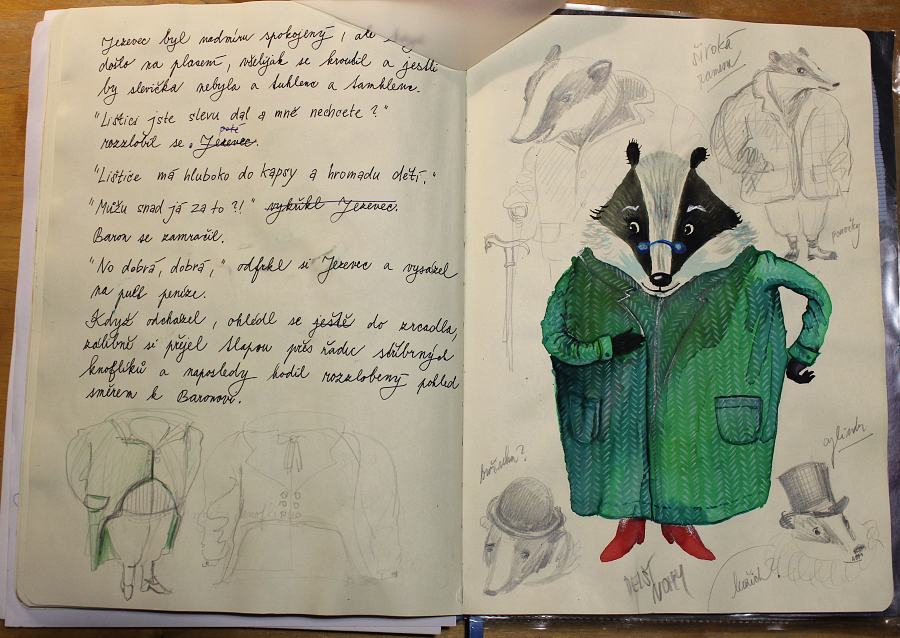 Jezevec byl nadmíru spokojený, ale
došlo na placení, všelijak se kroutil a jestli
by slevička nebyla a tuhlenc a támhlenc.
"Lištici jste slevu dal a mně nechcete?"
poté
rozzlobil se. Jezevec.
"Lištice má hluboko do kapsy a hromadu dětí."
"Můžu snad já za to?!" vykřikl Jezevec.
Baron se zamračil.
"No dobrá, dobrá," odfrkl si Jezevec a vysázel
na pult peníze.
Když odcházel, ohlédl se ještě do zrcadla,
zálibně si přejel tlapou přes řadu stříbrných
knoflíků a naposledy hodil rozzlobený pohled
směrem k Baronovi.
široká
ramena
ponožky
buřinka?
cylindr
DELŠÍ
NOHY